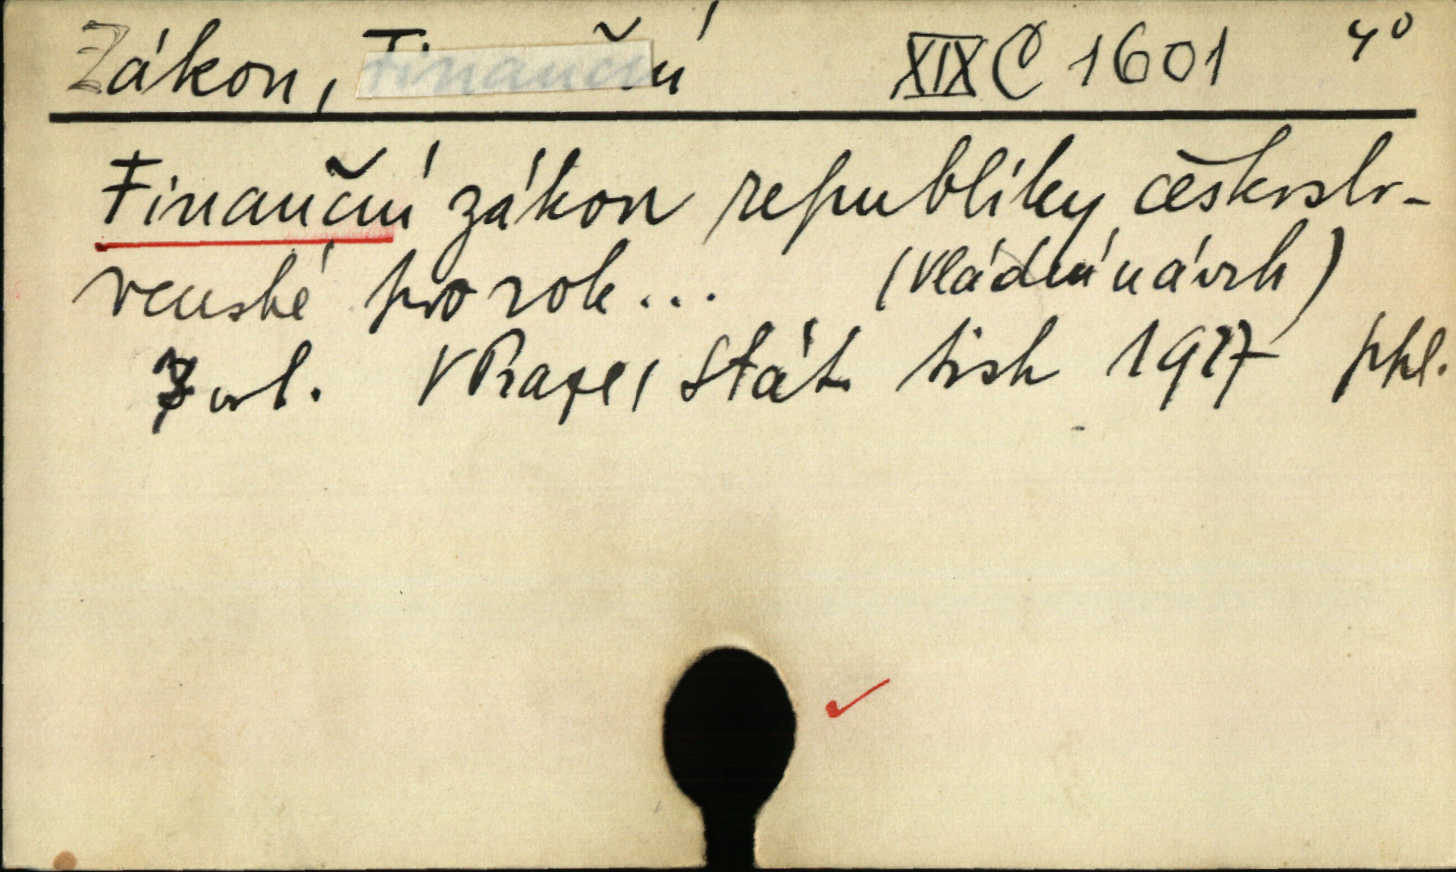 Zákon, Finanční XIX C 1601 4°
Finanční zákon republiky českoslo-
venské pro rok... (vládní návrh)
V Praze, Stát. tisk 1927